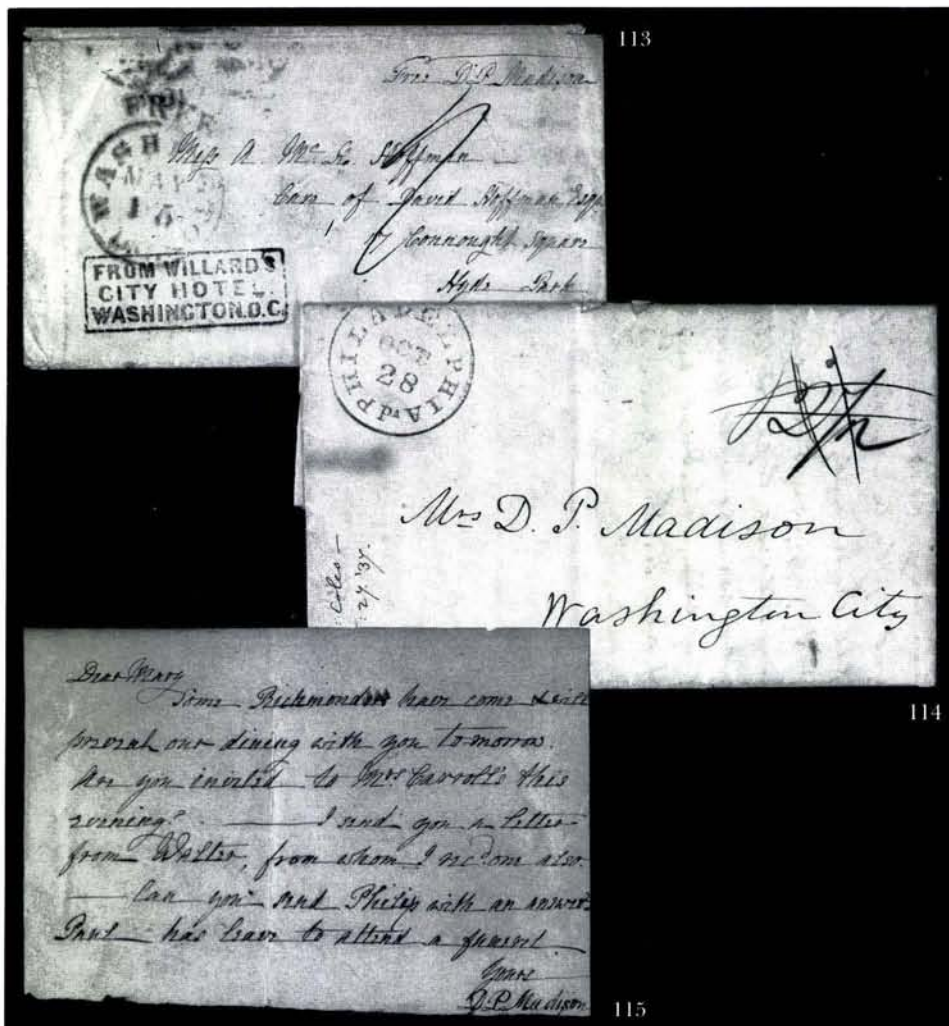 113
Free D. P. Madison
FREE
WASH
MAY
15
Miss A. Mc. L. Hoffman
Care of David Hoffman Esqr
7 Connought Square
Hyde Park
FROM WILLARDS
CITY HOTEL.
WASHINGTON.D.C.
PHILADELPHIA Pa
OCT
28
Mrs D. P. Madison
Washington City
Coles
114
Dear Mary
Some Richmonders have come & will
prevent our dining with you tomorrow.
Are you invited to Mrs Carroll's this
evening? — I send you a letter
from Walter, from whom I recd one also
— Can you send Philip with an answer
Paul has leave to attend a funeral
Yours
D. P. Madison
115